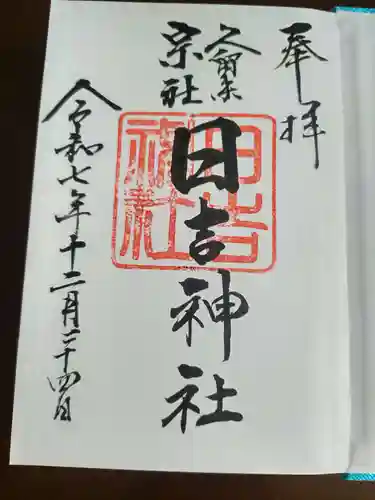 奉拝
久留米
宗社
日吉神社
日吉
神社
令和七年十二月二十四日